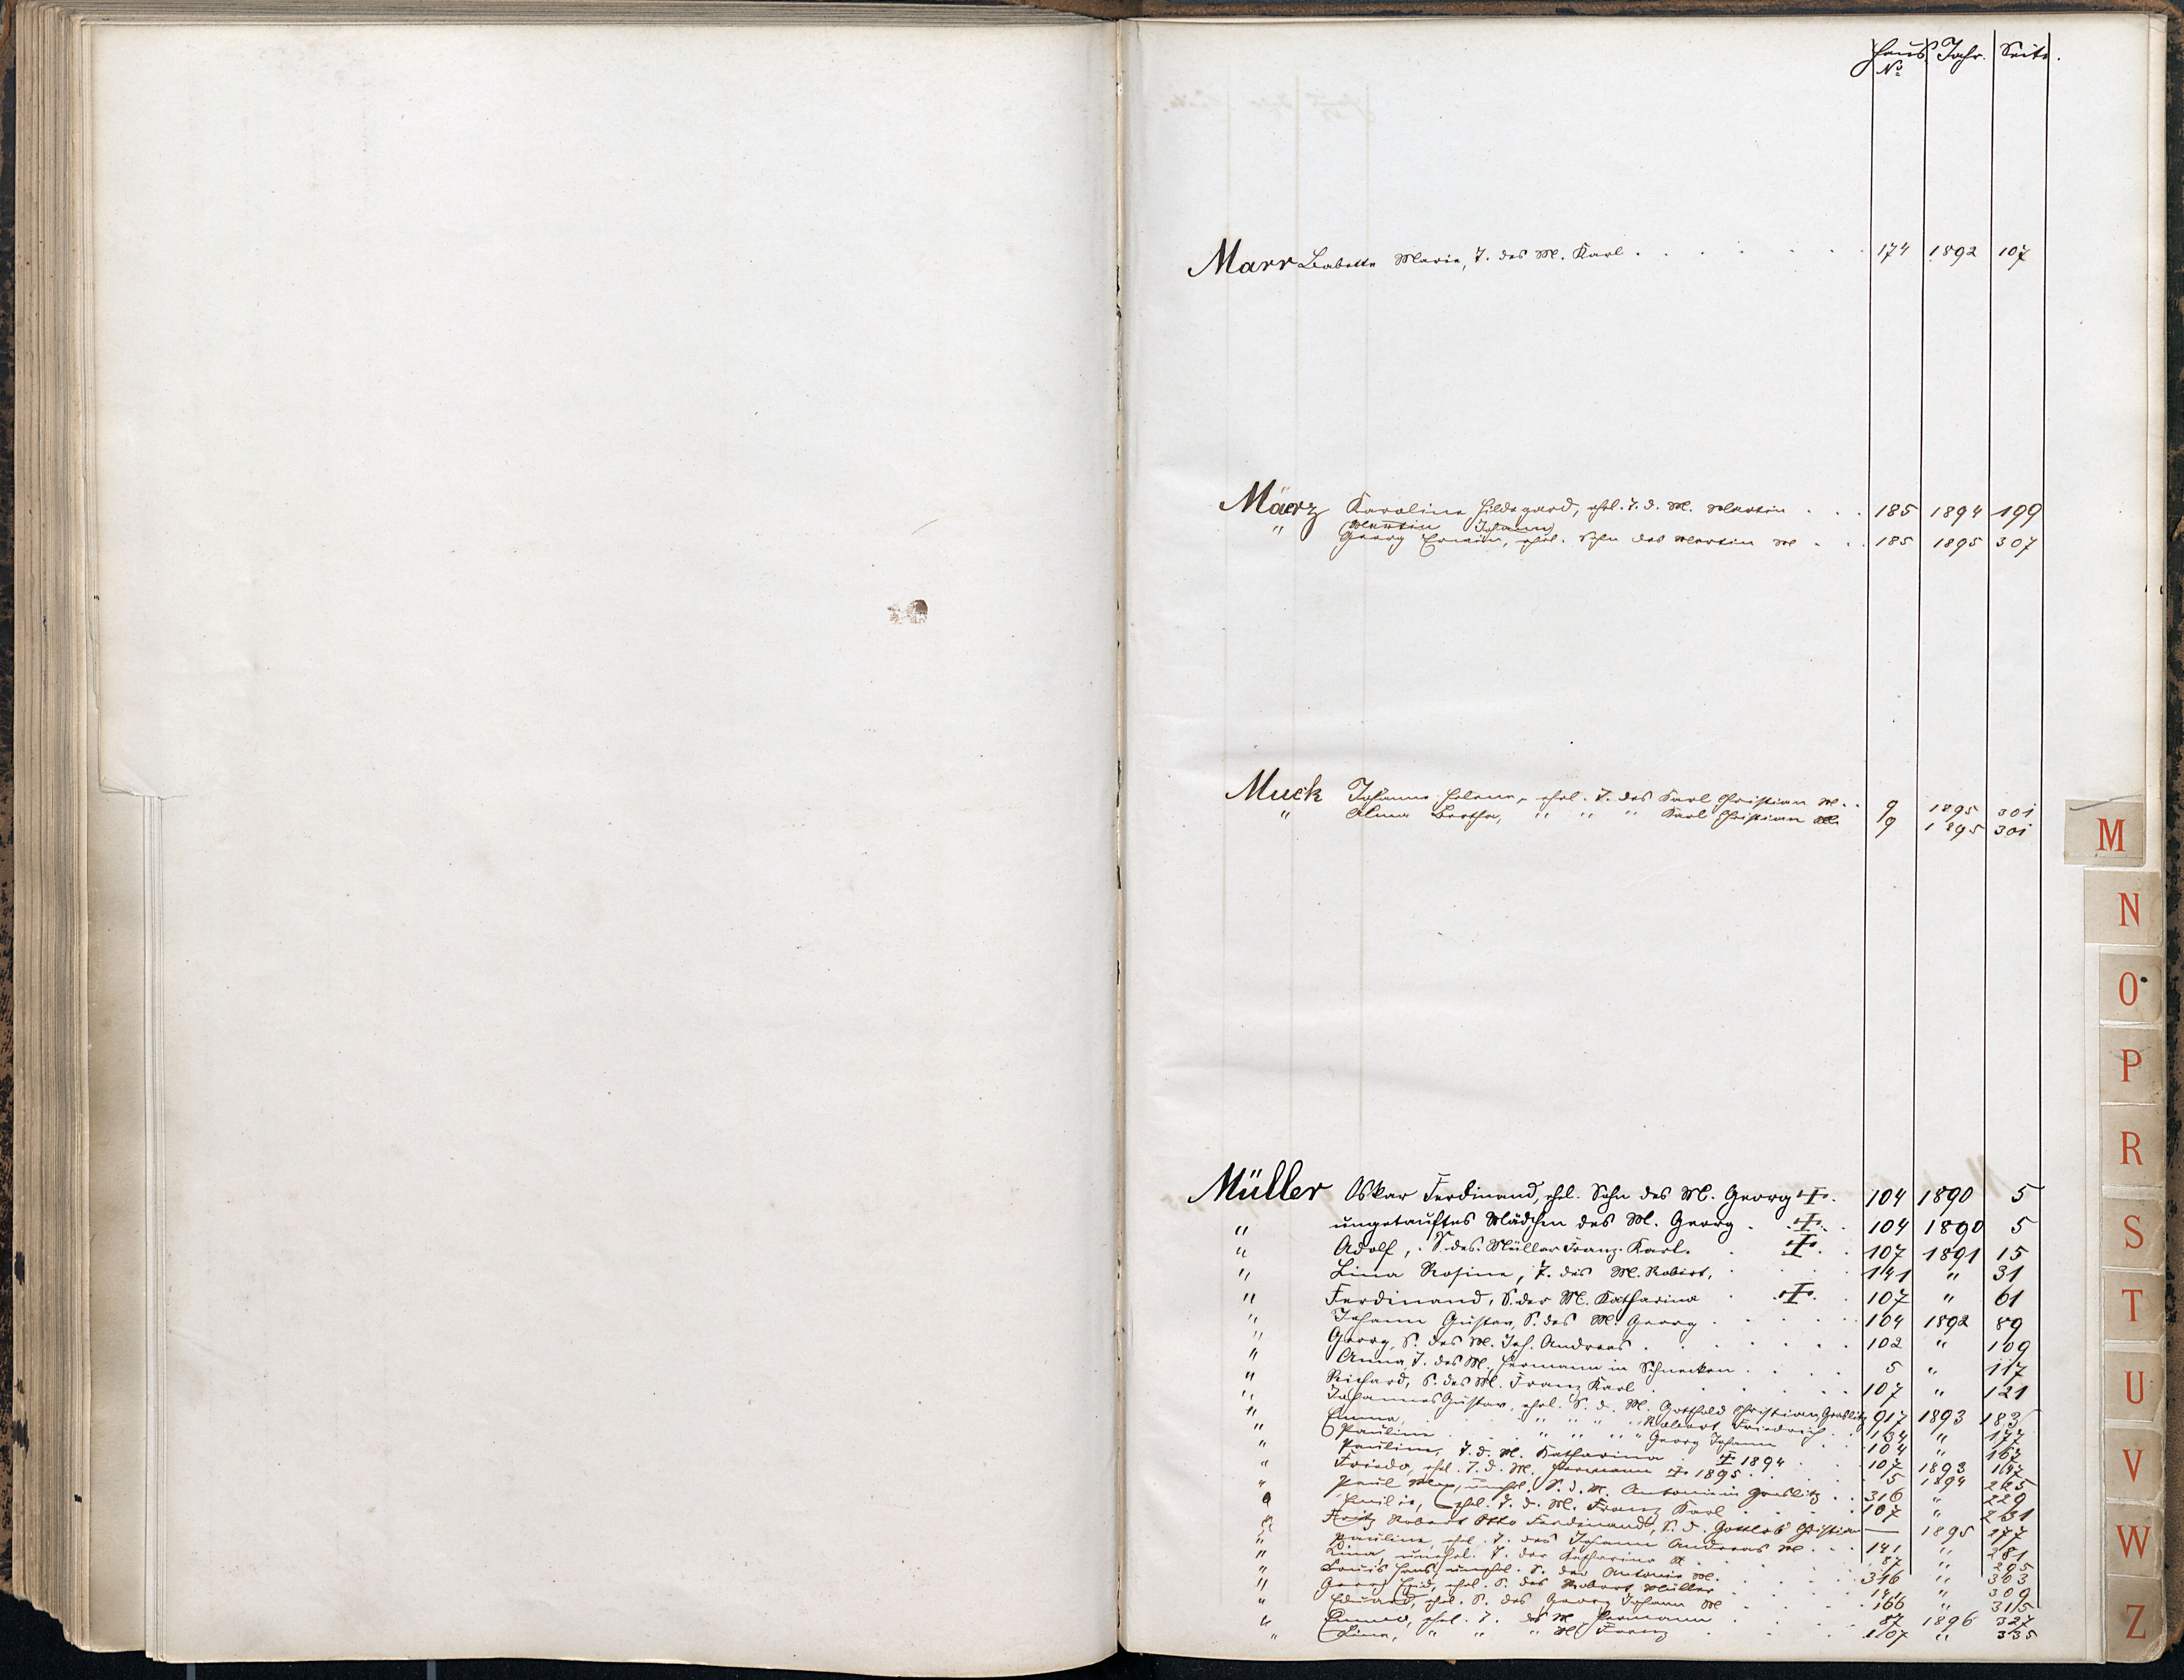 Haus Jahr. Seite.
No
Marr Babetta Maria, T. des M. Karl . 174 1892 107
März Karolina Hildegard, ehl. T. d. M. Martin . . . 185 1894 199
Martin Johann
" Georg Erwin, ehl. Sohn des Martin M . . . 185 1895 307
Muck Johanna Helena, ehl. T. des Karl Christian M. . 9 1895 301
" Alma Bertha, " " " Karl Christian M. 9 1895 301
M
N
O
P
R
S
T
U
V
W
Z
Müller Oskar Ferdinand, ehl. Sohn des M. Georg 104 1890 5
" ungetauftes Mädchen des M. Georg . 104 1890 5
" Adolf, S. des Müller Franz Karl. 107 1891 15
" Lina Rosina, T. des M. Robert, 141 " 31
" Ferdinand, S. der M. Katharina 107 " 61
" Johann Gustav, S. des M. Georg . 104 1892 89
" Georg, S. des M. Joh. Andreas . 102 " 109
" Anna, T. des M. Hermann in Schnecken . 5 " 117
" Richard, S. des M. Franz Karl . 107 " 121
" Johannes Gustav, ehl. S. d. M. Gotthold Christian Graslitz 917 1893 183
" Emma, " " " " Robert Friedrich . " 177
" Paulina . " " " " Georg Johann 104 " 167
" Paulina, T. d. M. Katharina . 1894 . 107 1893 147
" Frieda, ehl. T. d. M. Hermann 1895 . 5 1894 265
" Paul Max, unehl. S. d. M. Antonia in Graslitz . . 316 " 229
Emilie, ehl. T. d. M. Franz Karl 107 " 231
Fritz Robert Otto Ferdinand, S. d. Gottlob Christian — 1895 277
" Paulina, ehl. T. des Johann Andreas M . . . 141 " 281
" Lina, unehl. T. der Katharina M . 87 " 295
" Louis Hans, unehl. S. der Antonia M. . 316 " 303
" Georg , ehl. S. des Robert Müller . 141 " 309
" Eduard, ehl. S. des Georg Johann M . 166 " 315
" Emma, ehl. T. des M. Hermann . 87 1896 327
" Lina, " " " M. Franz . 107 " 335